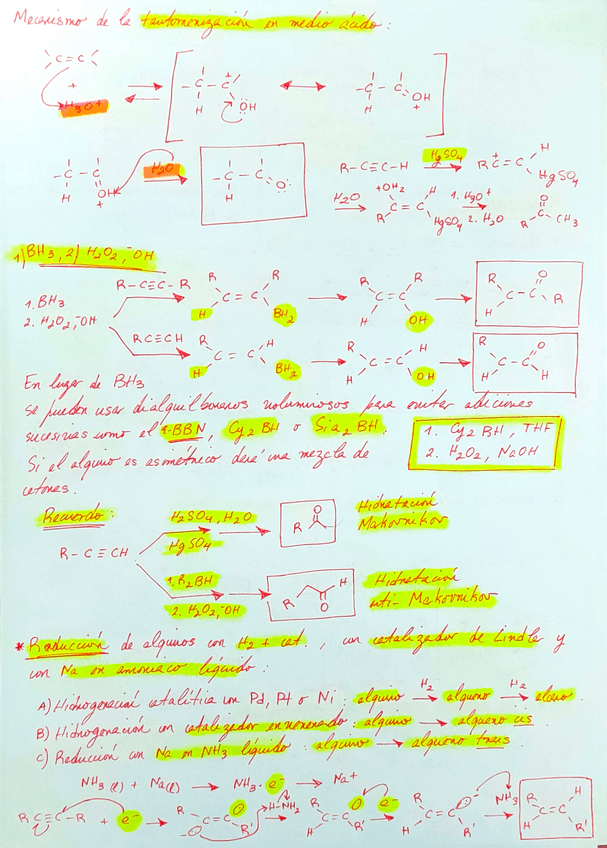 Mecanismo de la tautomerización en medio ácido:
C=C
+
H3O+
C - C
H
OH
C - C
H
OH
+
C - C
H
OH
+
H2O
C - C
H
O:
R-C≡C-H HgSO4 R C = C H
HgSO4
H2O +OH2 C = C H
R HgSO4
1. HgO+
2. H2O
O
R C CH3
1) BH3, 2) H2O2, -OH
1. BH3
2. H2O2, -OH
R-C≡C-R
R R
C = C
H BH2
R R
C = C
H OH
R O
H - C - C
H R
RC≡CH
R H
C = C
H BH2
R H
C = C
H OH
R O
H C - C
H H
En lugar de BH3
se pueden usar dialquilboranos voluminosos para evitar adiciones
sucesivas como el 9-BBN, Cy2BH o Sia2BH.
Si el alquino es asimétrico dará una mezcla de
cetonas.
1. Cy2BH, THF
2. H2O2, NaOH
Recuerdo:
R-C≡CH
H2SO4, H2O
HgSO4
O
R
Hidratación
Makovnikov
1. R2BH
2. H2O2, -OH
R H
O
Hidratación
anti-Makovnikov
* Reducción de alquinos con H2 + cat., con catalizador de Lindle y
con Na en amoniaco líquido:
A) Hidrogenación catalítica con Pd, Pt o Ni: alquino → H2 alqueno → H2 alcano.
B) Hidrogenación con catalizador envenenado: alquino → alqueno cis
C) Reducción con Na en NH3 líquido: alquino → alqueno trans.
NH3(l) + Na(s) → NH3·e- → Na+
RC≡C-R + e- → R C=C R' H-NH2 R C=C H R' e- → R C=C H R' NH3 → R C=C H H R'